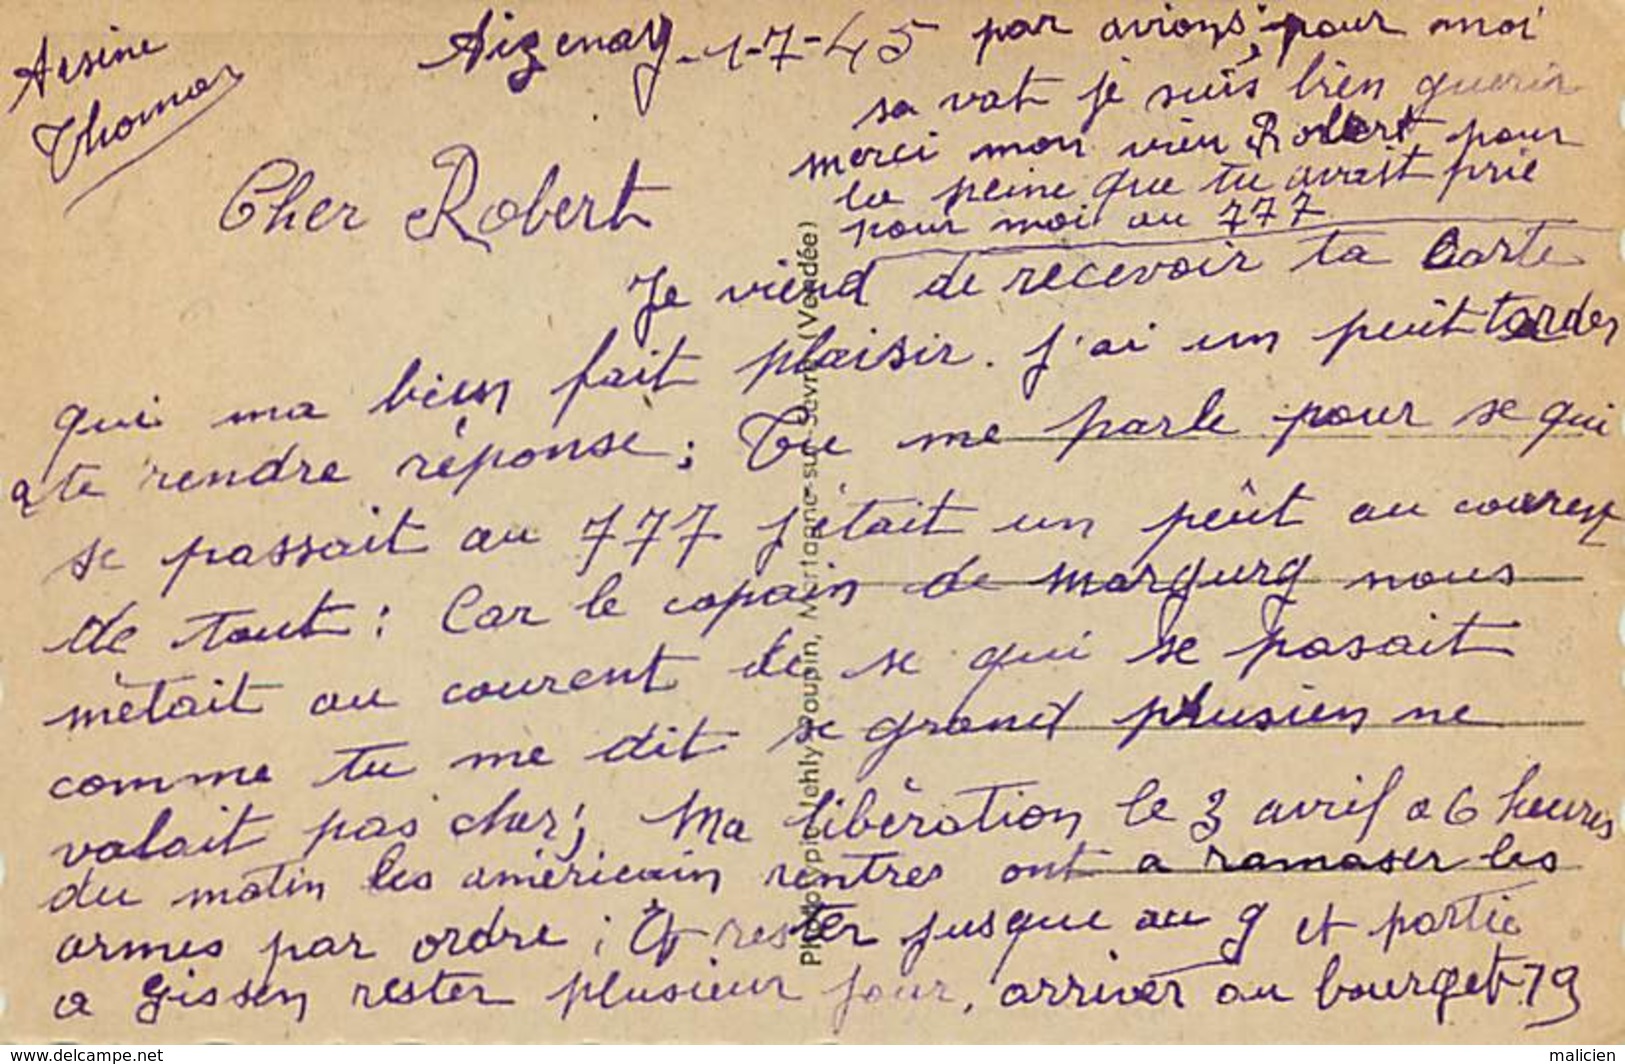 Arsine
Thomas
Aizenay - 1-7-45
Cher Robert
Je viend de recevoir ta carte
qui ma bien fait plaisir. J'ai un peut tarder
a te rendre réponse ; Tu me parle pour se qui
se passait au 777 j'était un peût au courent
de tout : Car le copain de Margurg nous
mètait au courent de se qui se pasait
comme tu me dit se grand plusien ne
valait pas cher ; Ma libération le 3 avril a 6 heures
du matin les américain rentres ont a ramaser les
armes par ordre ; Et rester jusque au 9 et partie
a Gissen rester plusieur jour, arriver au bourget 19
par avions pour moi
sa vat je suis bien guerir
merci mon vieu Robert pour
la peine que tu avait prie
pour moi au 777
Phototypie Jehly-Poupin, Mortagne-sur-Sèvre (Vendée)
https://www.delcampe.net
malicien